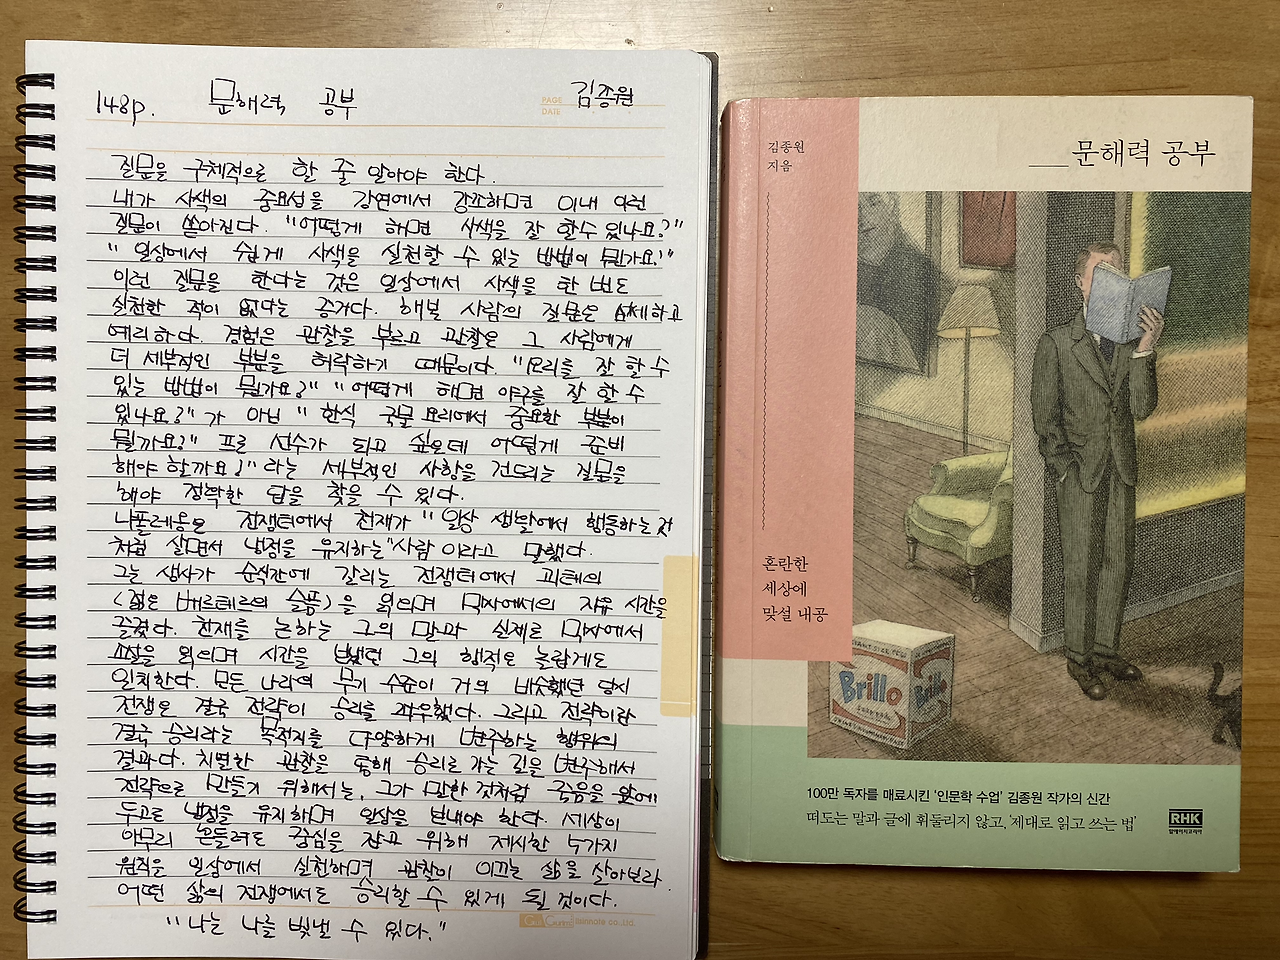 148p. 문해력 공부 김종원
PAGE
DATE
질문을 구체적으로 할 줄 알아야 한다.
내가 사색의 중요성을 강연에서 강조하면 이내 이런
질문이 쏟아진다. "어떻게 하면 사색을 잘 할수 있나요?"
" 일상에서 쉽게 사색을 실천할 수 있는 방법이 뭔가요?"
이런 질문을 한다는 것은 일상에서 사색을 한 번도
실천한 적이 없다는 증거다. 해본 사람의 질문은 섬세하고
예리하다. 경험은 관찰을 부르고 관찰은 그 사람에게
더 세부적인 부분을 허락하기 때문이다. "요리를 잘 할 수
있는 방법이 뭔가요?" "어떻게 하면 야구를 잘 할 수
있나요?"가 아닌 "한식 국물 요리에서 중요한 부분이
뭘까요?" 프로 선수가 되고 싶은데 어떻게 준비
해야 할까요?"라는 세부적인 사항을 건드리는 질문을
해야 정확한 답을 찾을 수 있다.
나폴레옹은 전쟁터에서 천재가 "일상 생활에서 행동하는 것
처럼 살면서 냉정을 유지하는"사람 이라고 말했다.
그는 생사가 순식간에 갈리는 전쟁터에서 괴테의
<젊은 베르테르의 슬픔>을 읽으며 막사에서의 자유 시간을
즐겼다. 천재를 논하는 그의 말과 실제로 막사에서
소설을 읽으며 시간을 보냈던 그의 행적은 놀랍게도
일치한다. 모든 나라의 무기 수준이 거의 비슷했던 당시
전쟁은 결국 전략이 승리를 좌우했다. 그리고 전략이란
결국 승리라는 목적지를 다양하게 변주하는 행위의
결과다. 치열한 관찰을 통해 승리로 가는 길을 변주해서
전략으로 만들기 위해서는, 그가 말한 것처럼 죽음을 앞에
두고도 냉정을 유지하며 일상을 보내야 한다. 세상이
아무리 흔들려도 중심을 잡고 위해 제시한 누가지
원칙을 일상에서 실천하며 관찰이 이끄는 삶을 살아보라.
어떤 삶의 전쟁에서도 승리할 수 있게 될 것이다.
"나는 나를 빛낼 수 있다."
김종원
지음
문해력 공부
혼란한
세상에
맞설 내공
Brillo
Brillo
100만 독자를 매료시킨 '인문학 수업' 김종원 작가의 신간
떠도는 말과 글에 휘둘리지 않고, '제대로 읽고 쓰는 법'
RHK
알에이치코리아